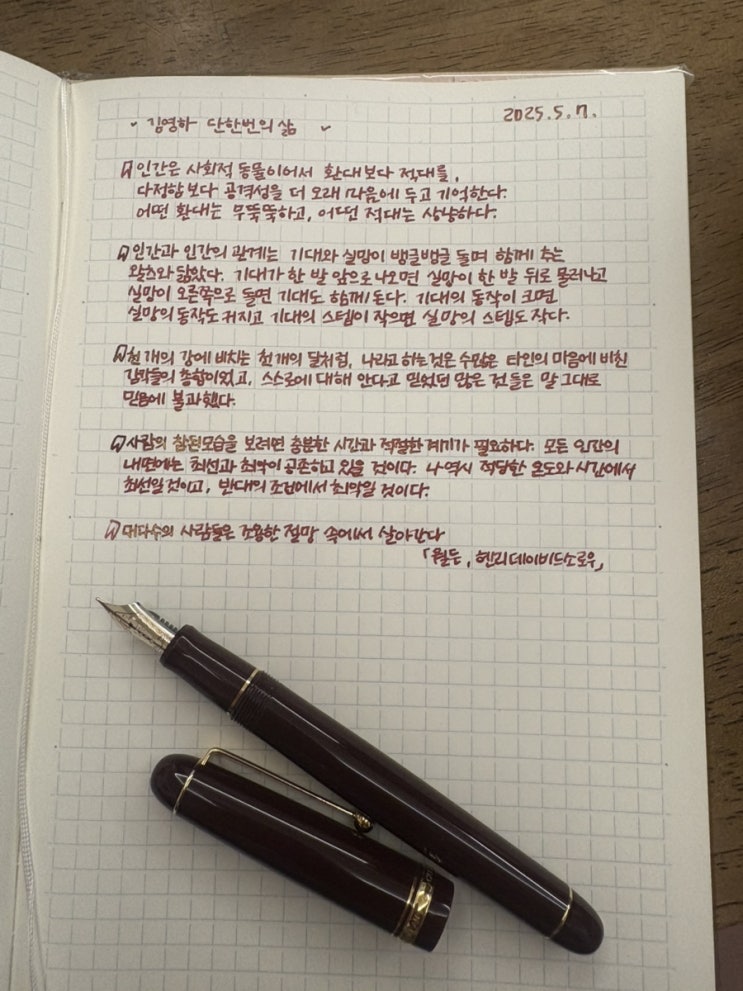 김영하 단한번의 삶
2025.5.7.
인간은 사회적 동물이어서 환대보다 적대를,
다정함보다 공격성을 더 오래 마음에 두고 기억한다.
어떤 환대는 무뚝뚝하고, 어떤 적대는 상냥하다.
인간과 인간의 관계는 기대와 실망이 뱅글뱅글 돌며 함께 추는
왈츠와 닮았다. 기대가 한 발 앞으로 나오면 실망이 한 발 뒤로 물러나고
실망이 오른쪽으로 돌면 기대도 함께 돈다. 기대의 동작이 크면
실망의 동작도 커지고 기대의 스텝이 작으면 실망의 스텝도 작다.
천 개의 강에 비치는 천 개의 달처럼, 나라고 하는 것은 수많은 타인의 마음에 비친
감각들의 총합이었고, 스스로에 대해 안다고 믿었던 많은 것들은 말 그대로
믿음에 불과했다.
사람의 참된모습을 보려면 충분한 시간과 적절한 계기가 필요하다. 모든 인간의
내면에는 최선과 최악이 공존하고 있을 것이다. 나 역시 적당한 온도와 시간에서
최선일 것이고, 반대의 조건에서 최악일 것이다.
대다수의 사람들은 조용한 절망 속에서 살아간다
「월든, 헨리데이비드소로우」